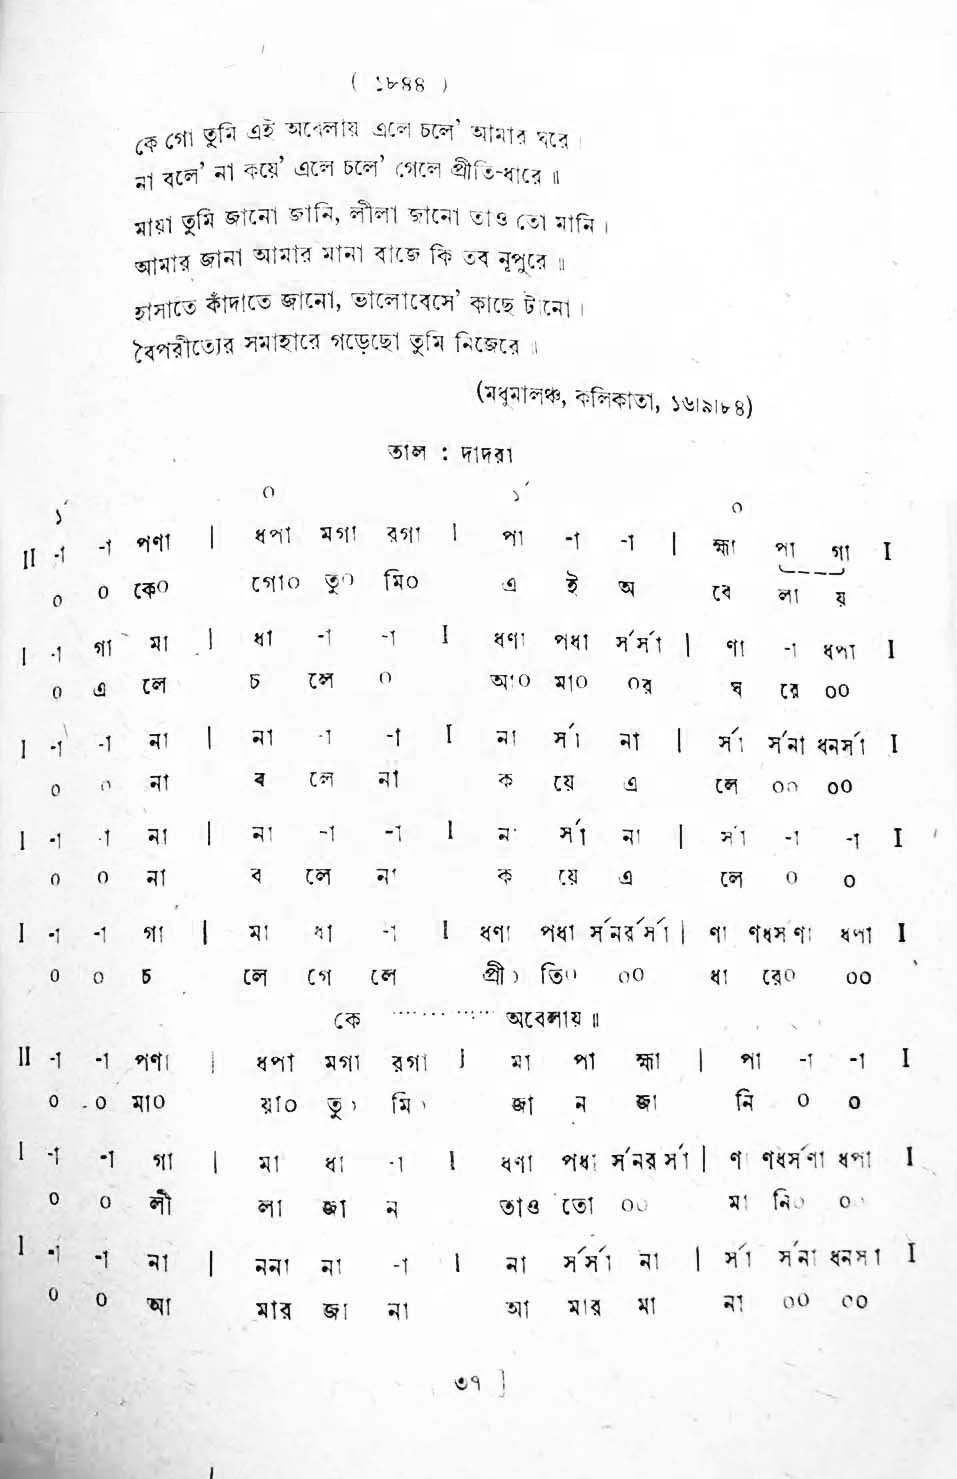 ( ১৮৪৪ )
কে গো তুমি এই অবেলায় এলে চলে' আমার ঘরে ।
না বলে' না কয়ে' এলে চলে' গেলে প্রীতি-ধারে ॥
মায়া তুমি জানো জানি, লীলা জানো তাও তো মানি ।
আমার জানা আমার মানা বাজে কি তব নূপুরে ॥
হাসাতে কাঁদাতে জানো, ভালোবেসে' কাছে টানো ।
বৈপরীত্যের সমাহারে গড়েছো তুমি নিজেরে ॥
(মধুমালঞ্চ, কলিকাতা, ১৬।৯।৮৪)
তাল : দাদরা
১´ ০ ১´ ০
II -া -া পণা | ধপা মগা রগা I পা -া -া | হ্মা পা গা I
০ ০ কে০ গো০ তু০ মি০ এ ই অ বে লা য়
I -া গা মা | ধা -া -া I ধণা পধা র্সর্সা | ণা -া ধপা I
০ এ লে চ লে ০ আ০ মা০ ০র ঘ রে ০০
I -া -া না | না -া -া I না র্সা না | র্সা র্সনা ধনর্সা I
০ ০ না ব লে না ক য়ে এ লে ০০ ০০
I -া -া না | না -া -া I না র্সা না | র্সা -া -া I
০ ০ না ব লে না ক য়ে এ লে ০ ০
I -া -া গা | মা ধা -া I ধণা পধা র্সনর্রর্সা | ণা ণধসণা ধপা I
০ ০ চ লে গে লে প্রী০ তি০ ০০ ধা রে০ ০০
কে ............ অবেলায় ॥
II -া -া পণা | ধপা মগা রগা I মা পা হ্মা | পা -া -া I
০ ০ মা০ য়া০ তু০ মি০ জা ন জা নি ০ ০
I -া -া গা | মা ধা -া I ধণা পধা র্সনরর্সা | ণা ণধর্সণা ধপা I
০ ০ লী লা জা ন তাও তো ০০ মা নি০ ০০
I -া -া না | ননা না -া I না র্সর্সা না | র্সা র্সনা ধনসা I
০ ০ আ মার জা না আ মার মা না ০০ ০০
৩৭ ]